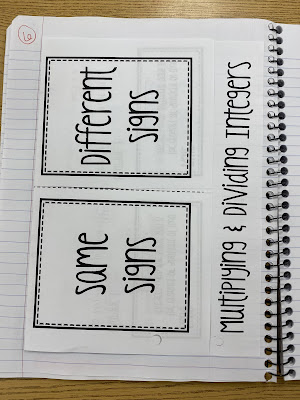 Multiplying & Dividing Integers
Same
Signs
Different
Signs